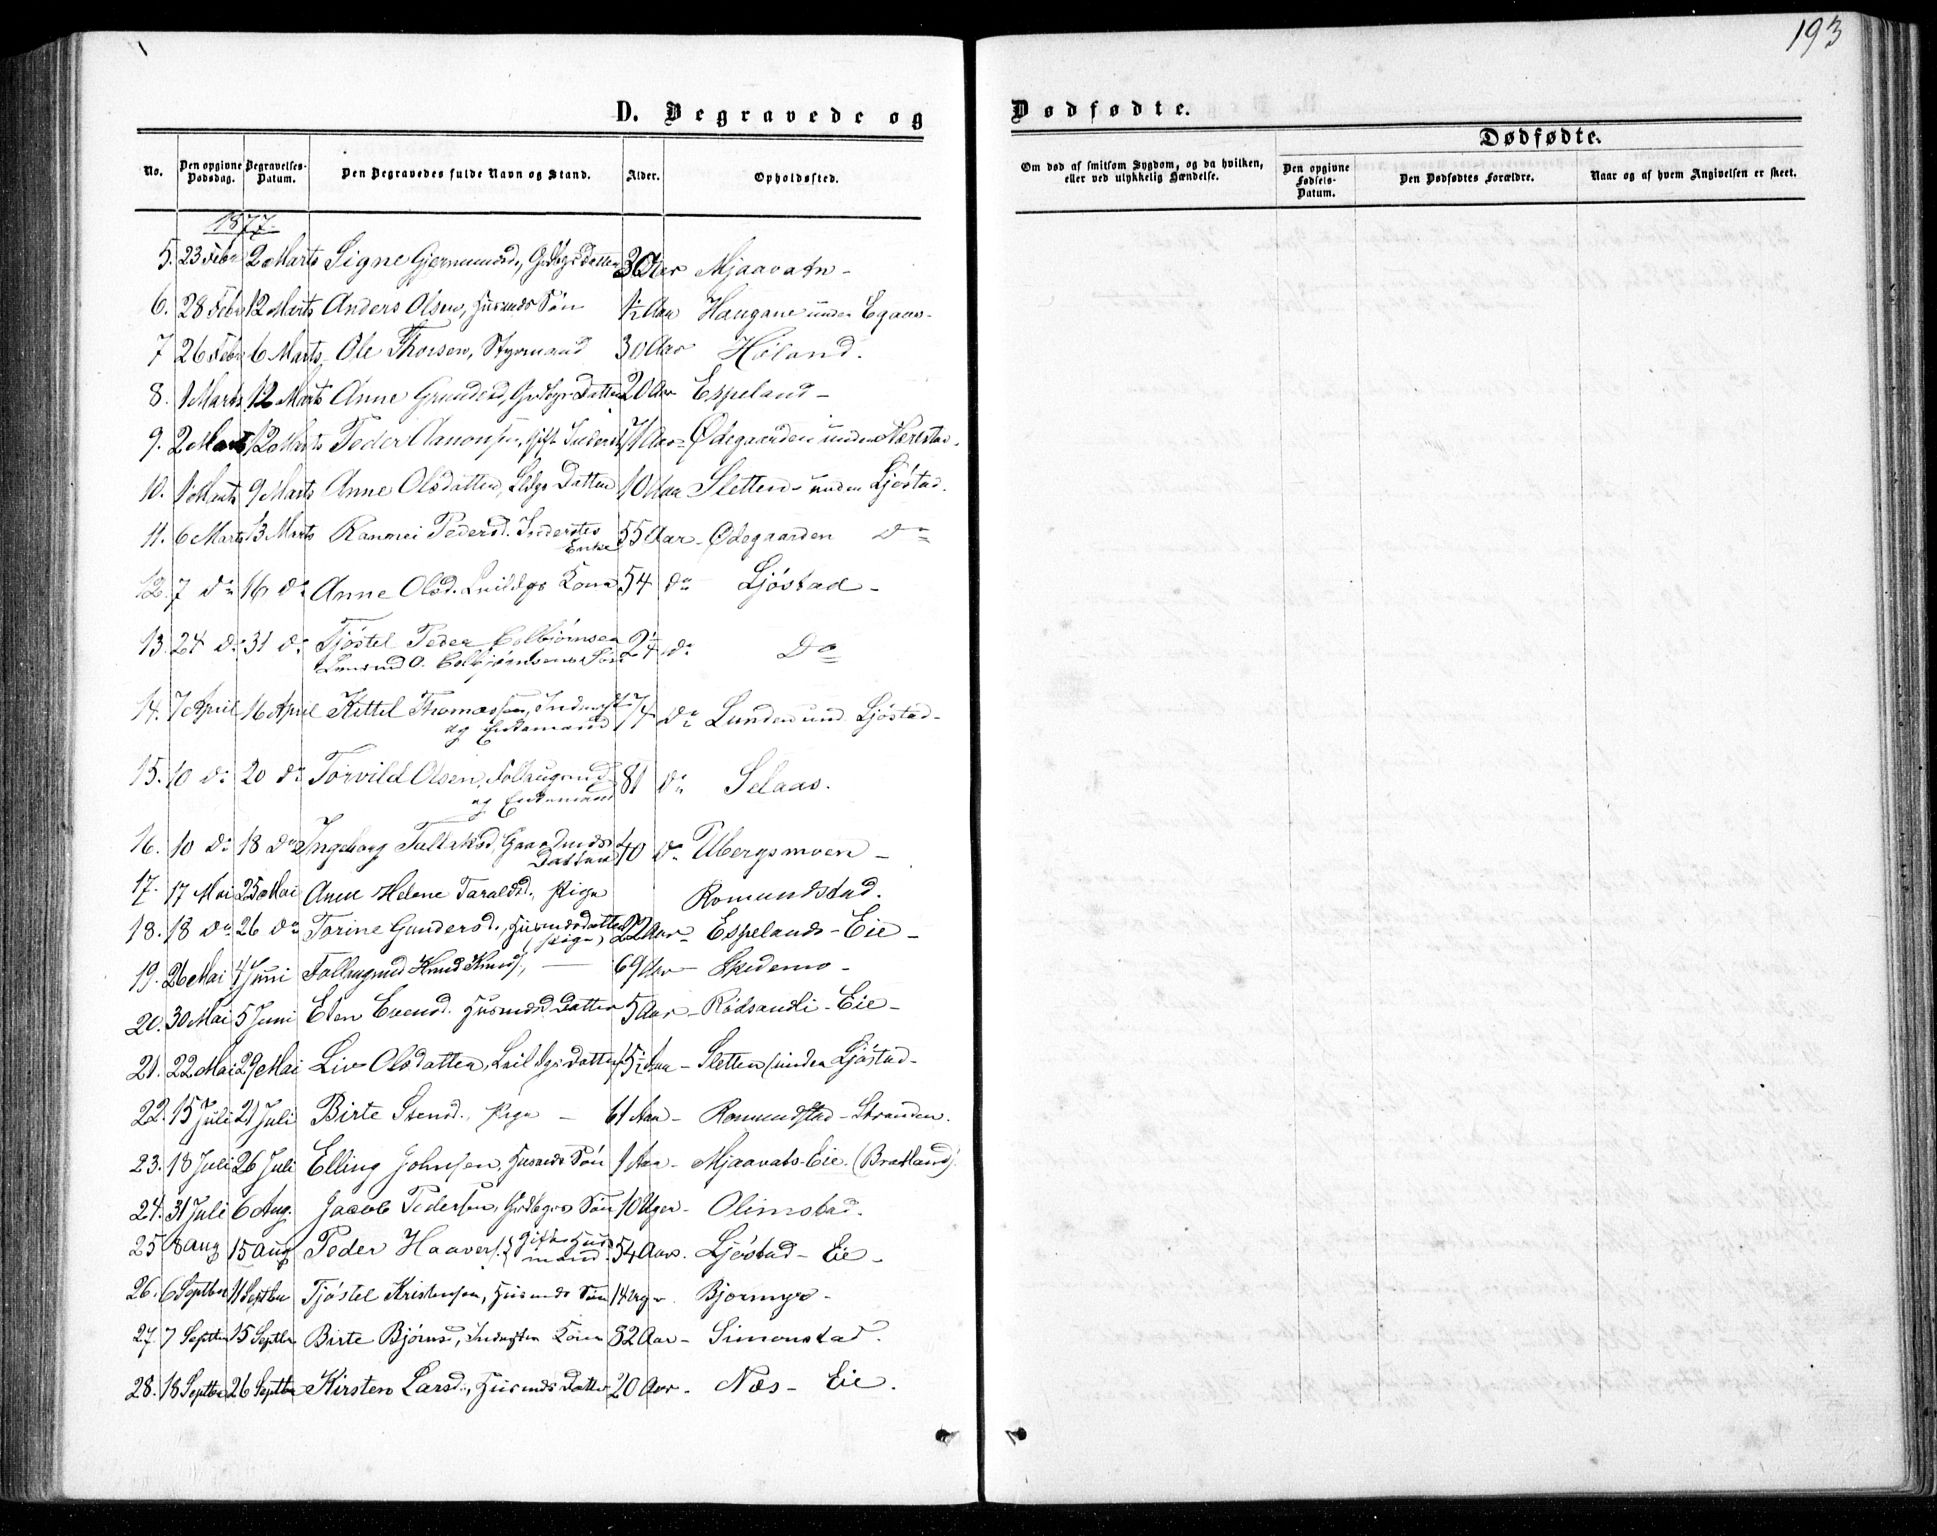 193
D. Begravede og Dødfødte.
Dødfødte.
No. Den opgivne Dødsdag. Begravelses-Datum. Den Begravedes fulde Navn og Stand. Alder. Opholdssted.
Om død af smitsom Sygdom, og da hvilken, eller ved ulykkelig Hændelse. Den opgivne Fødsels-Datum. Den Dødfødtes Forældre. Naar og af hvem Angivelsen er skeet.
1877.
5. 23 Febr 2 Marts Signe Gjermundsd, Datter 3 Aar Mjaavatn -
6. 28 Febr 12 Marts Anders Olsen, Husmds Søn 1/2 Aar Haugane under Egaas-
7 26 Febr 6 Marts Ole Thorsen, Styrmand 30 Aar Høland.
8. 1 Marts 12 Marts Anne Gundersd, Datter 20 Aar Espeland -
9. 2 Marts 12 Marts Peder Aanonsen, gift Inderst 71 Aar - Ødegaarden under Nærestad.
10. 1 Marts 9 Marts Anne Olsdatter, Datter 10 Aar Sletten - under Ljøstad.
11. 6 Marts 13 Marts Ranmei Pedersd. Inderstes
Enke 55 Aar - Ødegaarden do
12. 7 do 16 do Anne Olsd. Leildgs Kone 54 do Ljøstad -
13. 24 do 31 do Tjøstel Peder Colbjørnsen
O. Colbjørnsens Søn 2 1/4 do Do
14. 7 April 16 April Kittel Thomassen, Inderst
og Enkemand 74 do Lunden und. Ljøstad -
15. 10 do 20 do Torvild Olsen, Folaugmd
og Enkemand 81 do Selaas.
16. 10 do 18 do Ingeborg Tallaksd, Gaardmds
Datter 40 do Ubergsmoen -
17. 17 Mai 25 Mai Anne Helene Taraldsd., Pige Romundstad.
18. 18 do 26 do Torine Gundersd., Husmdsdatter
(Pige) 22 Aar - Espelands - Eie -
19. 26 Mai 4 Juni Follaugmd Knud Knuds., — 69 Aar - Skedemo -
20. 30 Mai 5 Juni Elen Evensd. Husmds Datter 5 Aar - Rødsandli - Eie -
21. 22 Mai 29 Mai Liv Olsdatter, Leildgs datter 15 1/2 Aar - Sletten (under Ljøstad -
22. 15 Juli 21 Juli Birte Stensd., Pige - 61 Aar - Romundstad - Stranden.
23. 18 Juli 26 Juli Elling Johnsen, Husmds Søn 1 Aar - Mjaavats-Eie. (Bratland)
24. 31 Juli 6 Aug. Jacob Pedersen, Søn 10 Uger - Olimstad.
25 8 Aug 15 Aug Peder Haavers. gift Hus
mand. 54 Aar. Ljøstad - Eie -
26. 6 Septber 11 Septbr Tjøstel Kristensen, Husmds Søn 14 Ug - Bjormyr -
27. 7 Septbr 15 Septbr Birte Bjørnsd, Inderstes Kone 82 Aar - Simonstad.
28. 18 Septbr 26 Septbr Kirsten Larsd., Husmds Datter 20 Aar - Næs - Eie.